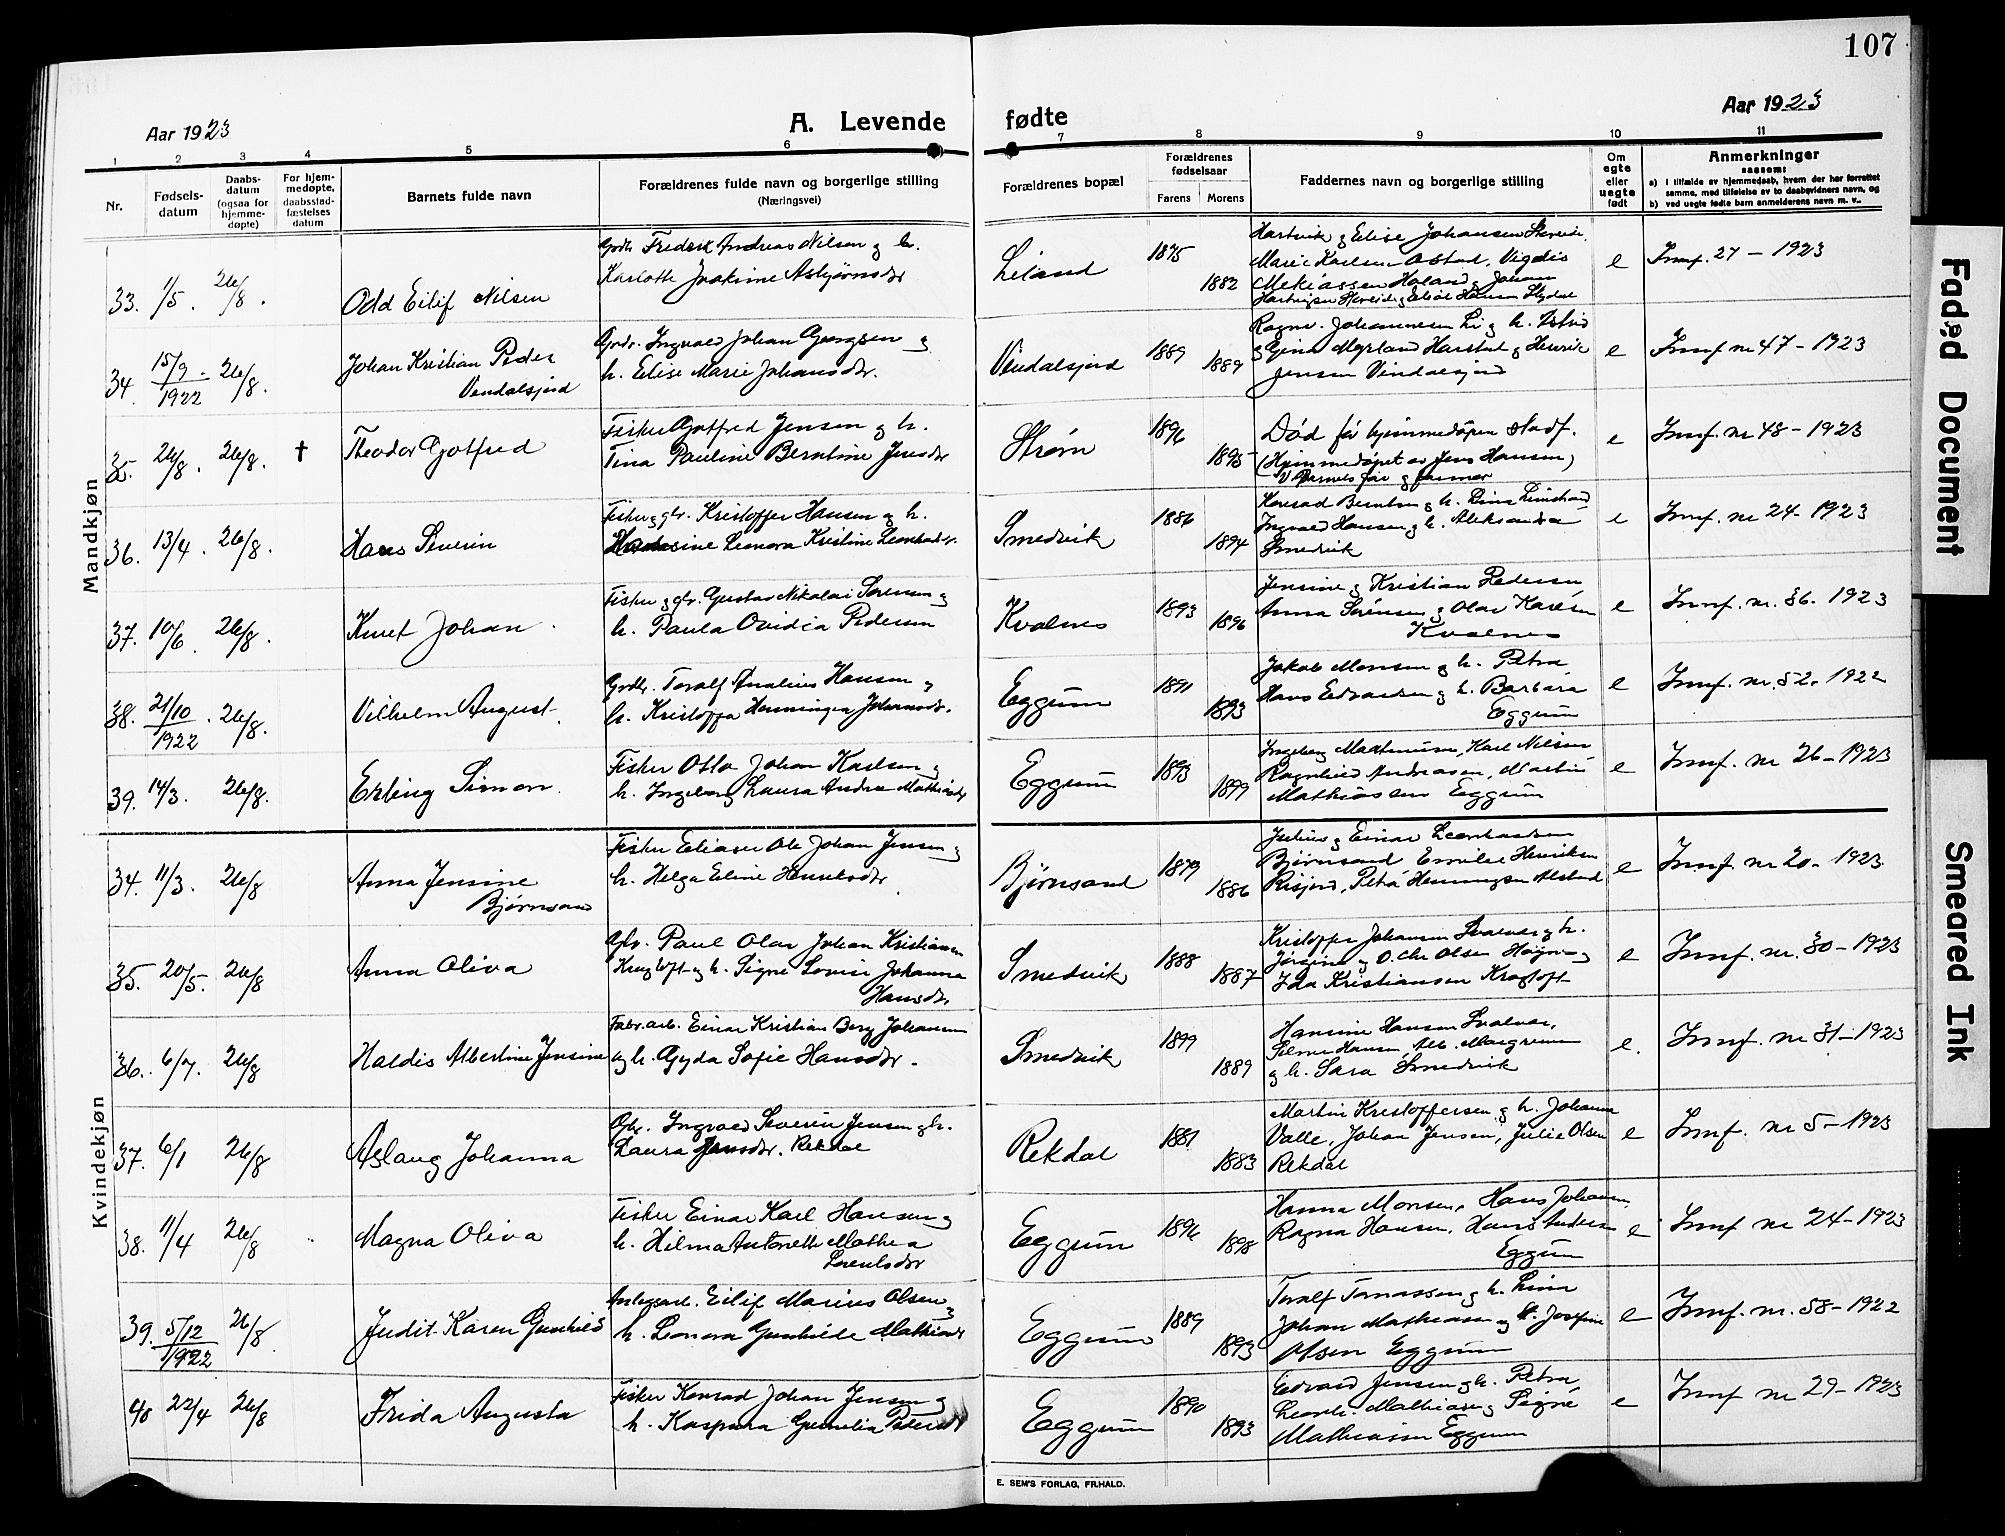 107
Aar 1923
A. Levende
fødte
Aar 1923
1 2 3 4 5 6 7 8 9 10 11
Nr.
Fødsels-
datum
Daabs-
datum
(ogsaa for
hjemme-
døpte)
For hjem-
medøpte,
daabsstad-
fæstelses
datum
Barnets fulde navn
Forældrenes fulde navn og borgerlige stilling
(Næringsvei)
Forældrenes bopæl
Forældrenes
fødselsaar
Farens Morens
Faddernes navn og borgerlige stilling
Om
egte
eller
uegte
født
Anmerkninger
saasom:
a) i tilfælde av hjemmedaab, hvem der har forrettet
samme, med tilføielse av to daabsvidners navn, og
b) ved uegte fødte barn anmelderens navn m. v..
Mandkjøn
33. 1/5. 26/8.
Odd Eilif Nilsen
Fredrik Andreas Nilsen og h.
Karlotte Joakime Asbjørnsdr
Leland
1875
1882
Hartvik og Elise Johansen
Marie Karlsen Vigdis
e
Innf. 27 – 1923
34. 15/9 1922 26/8.
Johan Kristian Peder
Vendalsjord
Grdr. Ingvald Johan Georgsen og
h. Elise Marie Johansdr.
Vendalsjord
1889
1889
Johannesen Li og h.
Harstad og Henrik
Jensen Vendalsjord
e
Innf nr 47 – 1923
35. 26/8. 26/8. †
Theodor Gotfred
Fisker Gotfred Jensen og h.
Tina Pauline Berntine Jensdr
Strøm
1896
1895
Død før hjemmedåpen stadf.
(Hjemmedøpt av Jens Hansen)
e
Innf. nr 48 – 1923
36. 13/4. 26/8.
Hans Severin
Fisker og gbr. Kristoffer Hansen og h.
Leonora Kristine Leonhardsdr.
Smedvik
1886
1894
Konrad Berntsen og h.
Ingvald Hansen og h. Aleksandra
Smedvik
e
Innf. nr 24 – 1923
37. 10/6. 26/8.
Knut Johan.
Fisker og gbr. Gustav Nikolai Sørensen og
h. Paula Ovidia Pedersen
Kvalnes
1893
1896
Jensine og Kristian Pedersen
Anna Sørensen og Olav Karlsen
Kvalnes
e
Innf. nr. 36. 1923
38. 21/10 1922. 26/8.
Vilhelm August.
Grdbr. Toralf Analius Hansen og
h. Kristoffa Henningea Johansdr.
Eggum
1891
1893
Jakob Monsen og h. Petra
Hans Edvardsen og h. Barbara
Eggum
e
Innf. nr. 52. 1922
39. 14/3. 26/8.
Erling Simon.
Fisker Otto Johan Karlsen og
h. Ingeborg Laura Andrea Mathiasdr
Eggum
1893
1899
Ingeborg Martinusen, Karl Nilsen
Ragnhild Andreasen, Martin
Mathiassen Eggum
e
Innf. nr 26 – 1923
Kvindekjøn
34. 11/3. 26/8
Anna Jensine
Bjørnsand
Fisker Eliaser Ole Johan Jensen og
h. Helga Eline Henriksdr
Bjørnsand
1879
1886
Julius og Einar Leonhardsen
Bjørnsand Emilie Henriksen
Risjord, Petra Henningsen Alstad
e
Innf nr 20 – 1923.
35. 20/5. 26/8
Anna Oliva
Gbr. Paul Olav Johan Kristiansen
Kragtoft og h. Signe Lovise Johanna
Hansdr.
Smedvik
1888
1887
Kristoffer Johansen Svalnes og h.
Jørgine og O. Chr Olsen Høgnes
Ida Kristiansen Kragtoft
e
Innf. nr. 30 – 1923
36. 6/7. 26/8
Haldis Albertine Jensine
Fabr.arb. Einar Kristian Berg Johansen
og h. Gyda Sofie Hansdr.
Smedvik
1899
1889
Hansine Hansen Svalnes,
Selmer Hansen, Alb. Margrensen
og h. Sara Smedvik
e.
Innf. nr 31 – 1923
37. 6/1 26/8
Aslaug Johanna
Gbr. Ingvald Severin Jensen og h.
Laura Jensdr. Rekdal
Rekdal
1881
1883
Martin Kristoffersen og h. Johanna
Valle, Johan Jensen, Julie Olsen
Rekdal
e
Innf. nr 5 – 1923
38. 11/4 26/8
Magna Oliva
Fisker Einar Karl Hansen og
h. Hilma Antonette Mathea
Lorentsdr
Eggum
1896
1898
Hanna Monsen, Hans Johansen
Ragna Hansen, Hans Andersen
Eggum
e
Innf nr 24 – 1923
39. 5/12 1922 26/8.
Judit Karen Gunhild
Anlegsarb. Eilif Marius Olsen og
h. Leonora Gunhilde Mathiasdr
Eggum
1889
1893
Toralf Tomassen og h. Lina
Johan Mathiasen og h. Josefine
Olsen Eggum
e
Innf. nr. 58 – 1922
40 22/4 26/8
Frida Augusta
Fisker Konrad Johan Jensen og
h. Kaspara Gunelia Pedersdr
Eggum
1890
1893
Edvard Jensen og h. Petra
Leonh. Mathiasen og Signe
Mathiassen Eggum
e
Innf nr 29 – 1923
E. SEM'S FORLAG, FR.HALD.
Faded Document
Smeared Ink